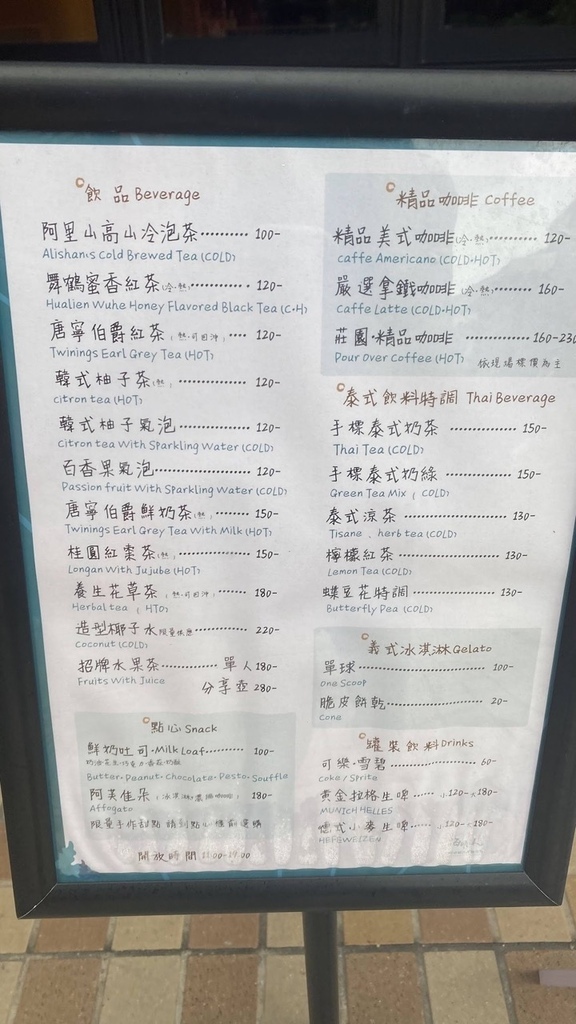 飲品 Beverage
阿里山高山冷泡茶 100-
Alishan's Cold Brewed Tea (COLD)
舞鶴蜜香紅茶(冷.熱) 120-
Hualien Wuhe Honey Flavored Black Tea (C•H)
唐寧伯爵紅茶(熱.可回沖) 120-
Twinings Earl Grey Tea (HOT)
韓式柚子茶(熱) 120-
citron tea (HOT)
韓式柚子氣泡 120-
Citron tea With Sparkling Water (COLD)
百香果氣泡 120-
Passion fruit With Sparkling Water (COLD)
唐寧伯爵鮮奶茶(熱) 150-
Twinings Earl Grey Tea With Milk (HOT)
桂圓紅棗茶(熱) 150-
Longan With Jujube (HOT)
養生花草茶(熱.可回沖) 180-
Herbal tea (HTO)
造型椰子水限量供應 220-
Coconut (COLD)
招牌水果茶 單人 180-
Fruits With Juice 分享壺 280-
點心 Snack
鮮奶吐司•Milk Loaf 100-
Butter•Peanut•Chocolate•Pesto•Souffle
阿芙佳朵(冰淇淋+濃縮咖啡) 180-
Affogato
限量手作甜點 請到點心櫃前選購
開放時間 11:00-19:00
精品咖啡 Coffee
精品美式咖啡(冷.熱) 120-
caffe Americano (COLD•HOT)
嚴選拿鐵咖啡(冷.熱) 160-
Caffe Latte (COLD•HOT)
莊園•精品咖啡 160-230
Pour Over Coffee (HOT) 依現場標價為主
泰式飲料特調 Thai Beverage
手標泰式奶茶 150-
Thai Tea (COLD)
手標泰式奶綠 150-
Green Tea Mix (COLD)
泰式涼茶 130-
Tisane . herb tea (COLD)
檸檬紅茶 130-
Lemon Tea (COLD)
蝶豆花特調 130-
Butterfly Pea (COLD)
義式冰淇淋 Gelato
單球 100-
One Scoop
脆皮餅乾 20-
Cone
罐裝飲料 Drinks
可樂•雪碧 60-
Coke / Sprite
黃金拉格生啤 小120-大180-
MUNICH HELLES
德式小麥生啤 小120-大180-
HEFEWEIZEN